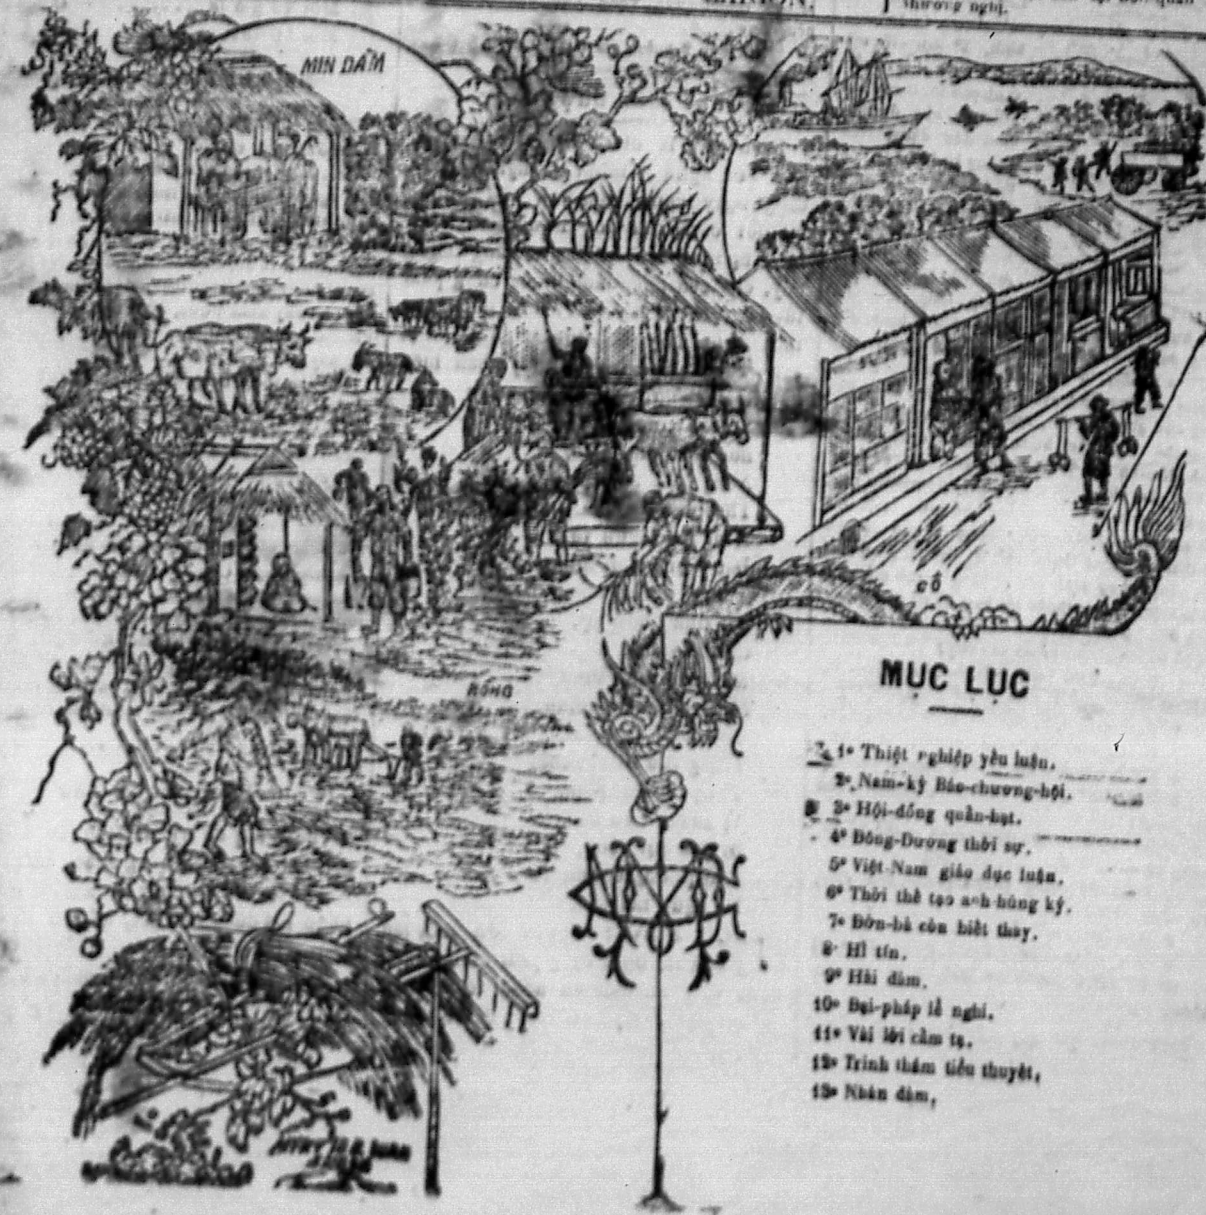 CANTON.
thương nghị.
MIN ĐÀM
CỔ
RỒNG
MỤC LỤC
1º Thiệt nghiệp yếu luận.
2º Nam-kỳ Báo-chương-hội.
3º Hội-đồng quản-hạt.
4º Đông-Dương thời sự.
5º Việt-Nam giáo dục luận.
6º Thời thế tạo anh hùng ký.
7º Đờn-bà còn biết thay.
8º Hỉ tín.
9º Hài đàm.
10º Đại-pháp lễ nghi.
11º Vài lời cảm tạ.
12º Trinh thám tiểu thuyết.
13º Nhàn đàm.